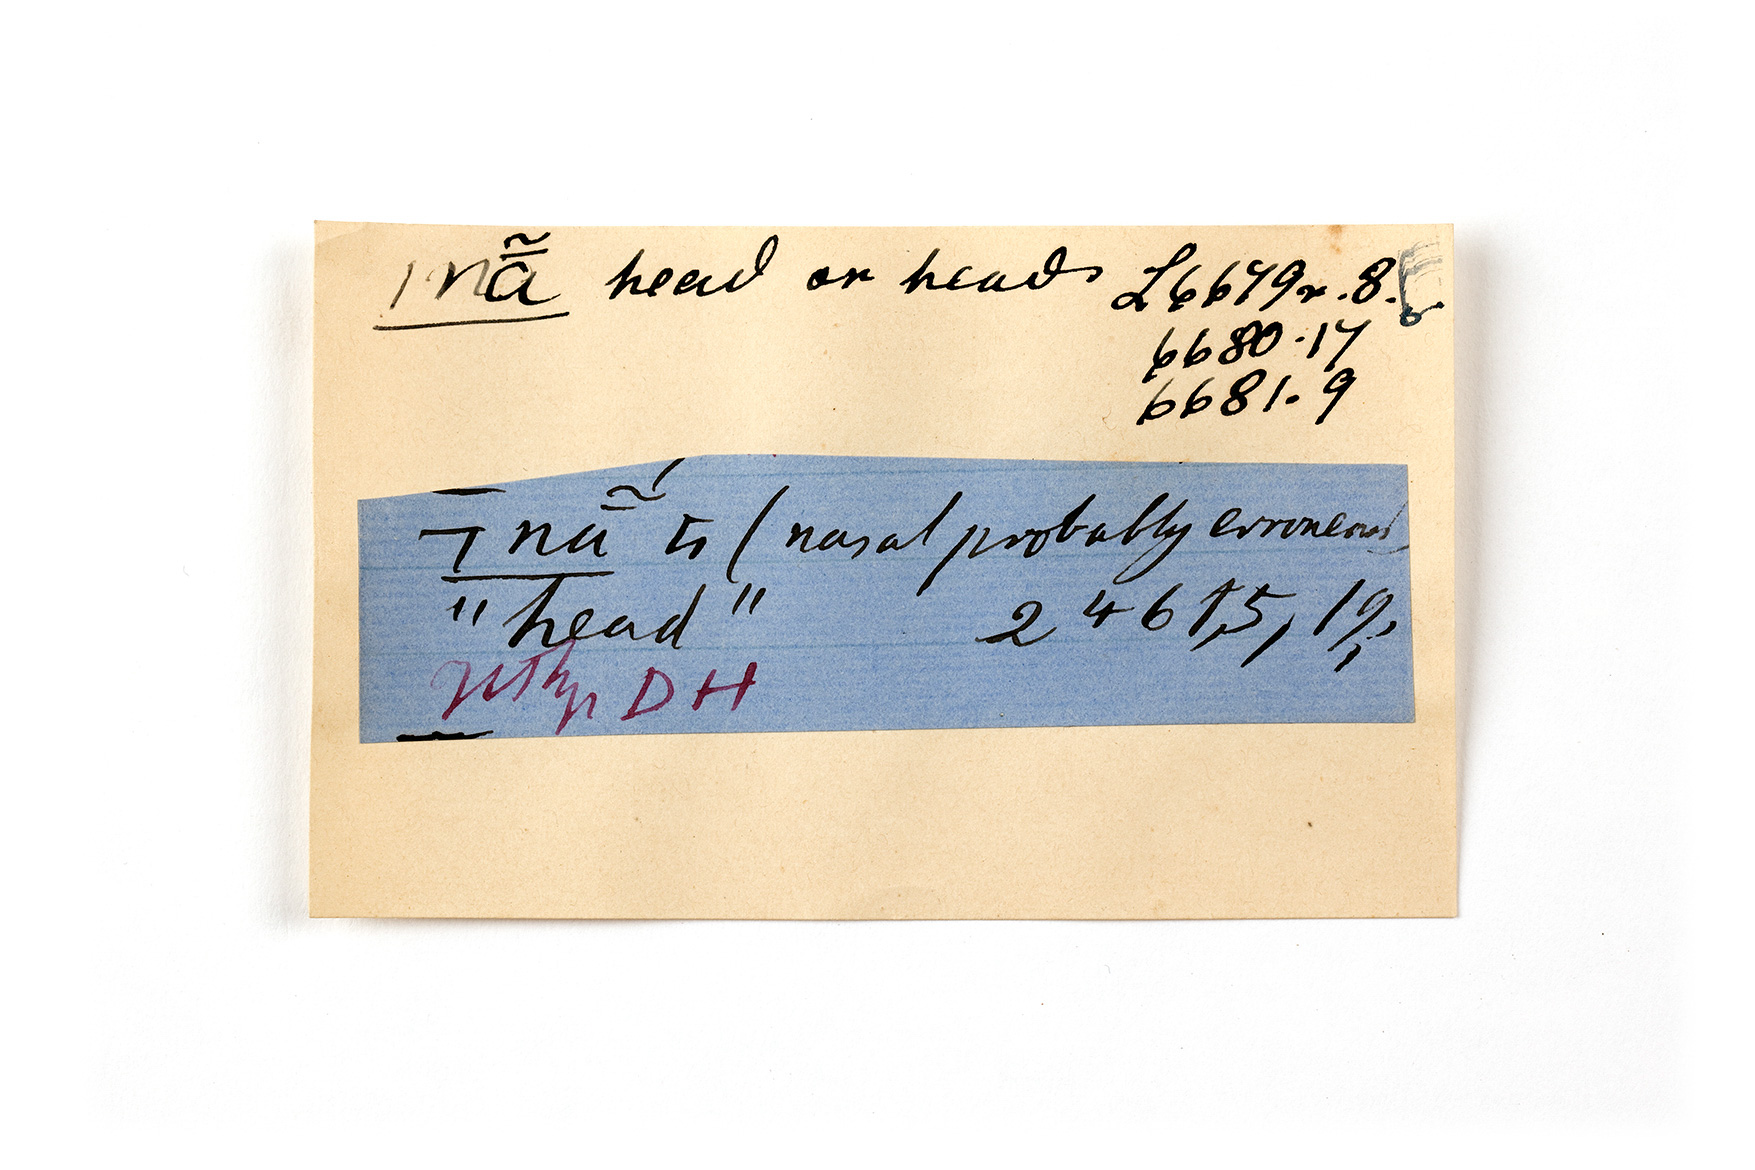 ǀnã̄ head or heads L6679r.8.
6680.17
6681.9
ǀnã̄ (nasal probably erroneous
"head" 2461,5, 19,
DH